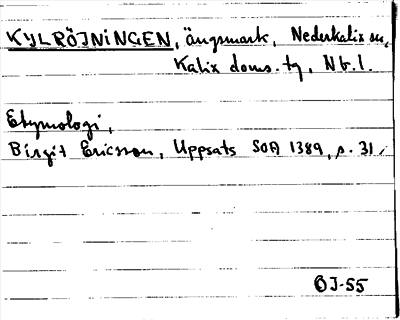 KYLRÖJNINGEN, ängsmark, Nederkalix sn,
Kalix doms. tg, Nb. l.
Etymologi,
Birgit Ericsson, Uppsats SOA 1389, p. 31.
BJ-55